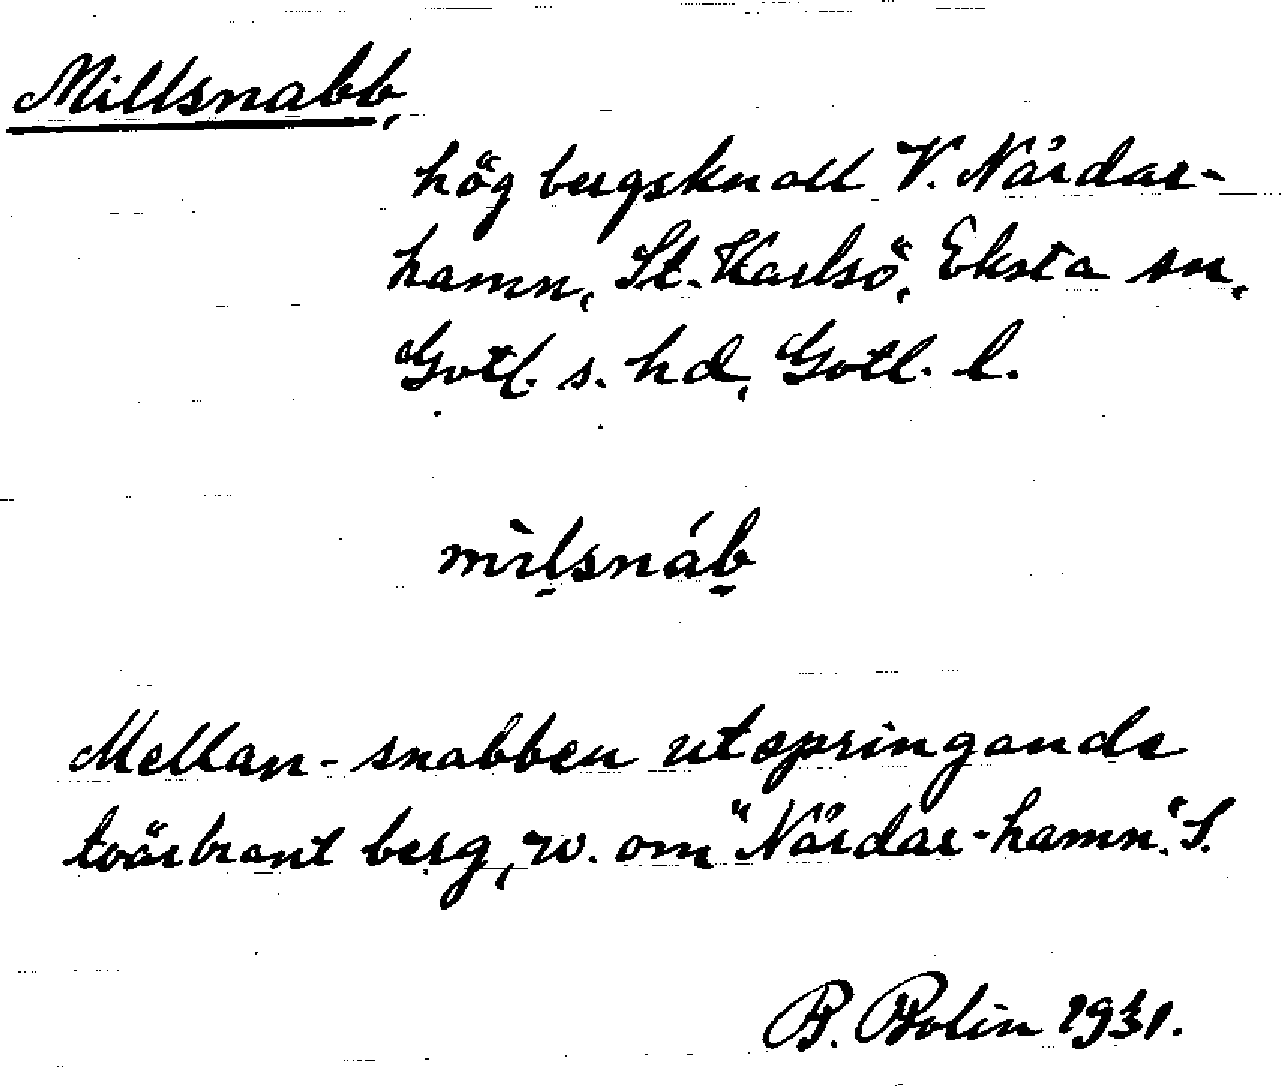 Millsnabb,
hög bergsknall V. Nårdar-
hamn, St. Karlsö, Eksta sn,
Gotl. s. hd, Gotl. l.
mìlsnáb
Mellan-snabben utspringande
tvärbrant berg, w. om "Nårdar-hamn". S.
B. Bolin 1931.